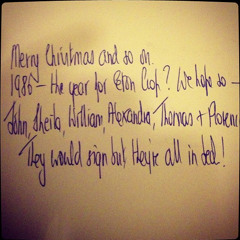 Merry Christmas and so on.
1986 - the year for Eton Coop? We hope so -
John, Sheila, William, Alexandra, Thomas + Florence
They would sign but they're all in bed!